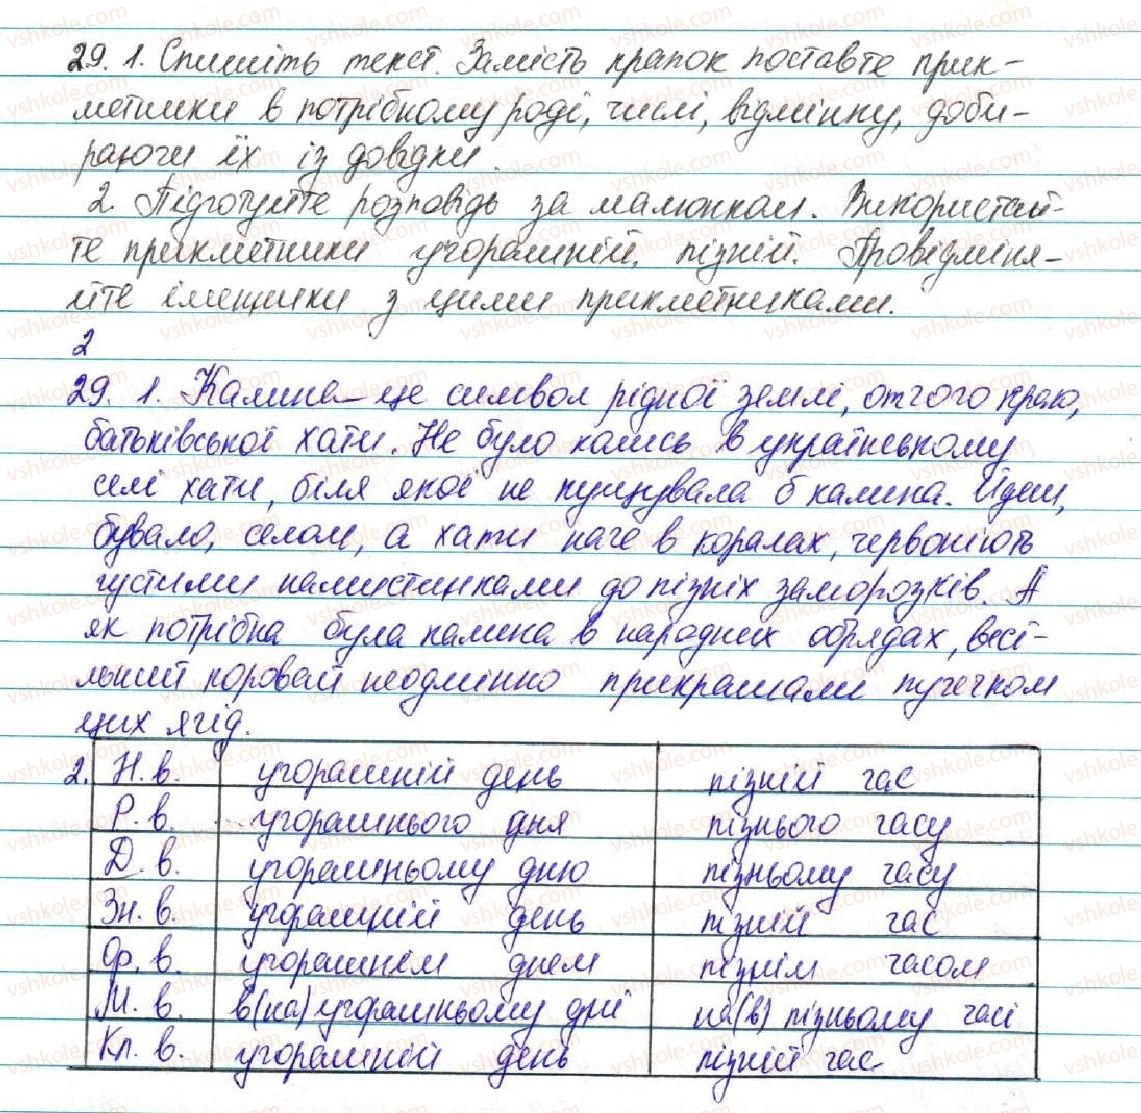 29. 1. Спишіть текст. Замість крапок поставте прик-
метники в потрібному роді, числі, відмінку, доби-
раючи їх із довідки.
2. Підготуйте розповідь за малюнком. Використай-
те прикметники учорашній, пізній. Провідміня-
йте іменники з цими прикметниками.
2
29. 1. Калина – це символ рідної землі, отчого краю,
батьківської хати. Не було колись в українському
селі хати, біля якої не кущувала б калина. Йдеш,
бувало, селом, а хати наче в коралах, червоніють
густими намистинками до пізніх заморозків. А
як потрібна була калина в народних обрядах, весі-
льний коровай неодмінно прикрашали пучечком
цих ягід.
2. Н. в. учорашній день пізній час
Р. в. учорашнього дня пізнього часу
Д. в. учорашньому дню пізньому часу
Зн. в. учорашній день пізній час
Ор. в. учорашнім днем пізнім часом
М. в. в(на) учорашньому дні на(в) пізньому часі
Кл. в. учорашній день пізній час